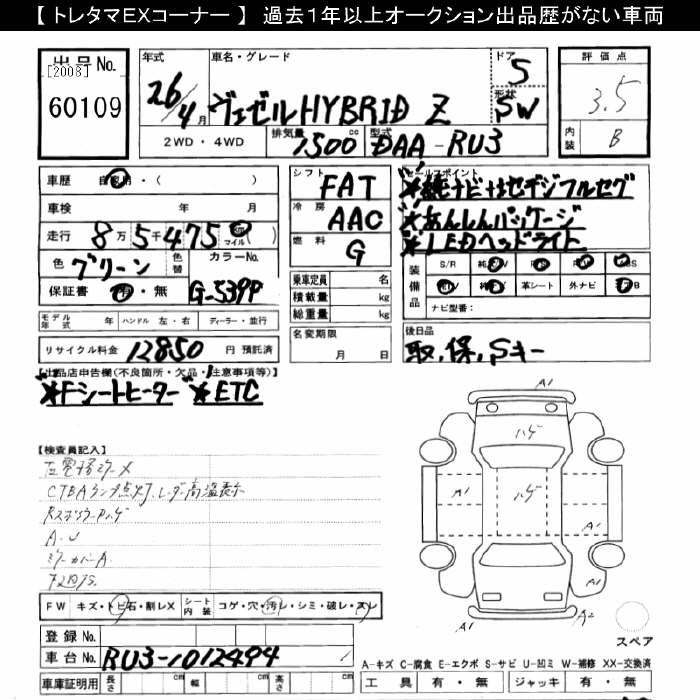 【 トレタマEXコーナー 】 過去１年以上オークション出品歴がない車両
出品No.
[2008]
60109
年式
26/4月
車名・グレード
ヴェゼルHYBRID Z
ドア
5
形状
SW
2WD・4WD
排気量 1500 cc
型式 DAA-RU3
評価点
3.5
内装
B
車歴 自家用・( )
車検 年 月
走行 8万5千475 km マイル ( )
色 グリーン 色替 カラーNo. G-539P
保証書 有・無
モデル年式 年 ハンドル 左・右 ディーラー・並行
リサイクル料金 12850 円 預託済
シフト FAT
冷房 AAC
燃料 G
乗車定員 名
積載量 kg
総重量 kg
名変期限
月 日
セールスポイント
※純ナビ+αセデジフルセグ
※あんしんパッケージ
※LEDヘッドライト
装備品
S/R 純 P/S P/W ABS
純 革シート 外ナビ
ナビ型番:
後日品
取,保,Sキー
【出品店申告欄(不良箇所・欠品・注意事項等)】
※Fシートヒーター ※ETC
【検査員記入】
CTBAランプ点灯,レーダー高温表示
Rスポイラーハゲ
A.U
ミラーカバーA
FW キズ・トビ石・割レX
シート内装 コゲ・穴・汚レ・シミ・破レ・スレ
登録No.
車台No. RU3-1012494
車庫証明用 長さ cm 幅 cm 高さ cm
A1
ハゲ
A1
ハゲ
A1
A1
A1
A2
スペア
A-キズ C-腐食 E-エクボ S-サビ U-凹ミ W-補修 XX-交換済
工具 有・無 ジャッキ 有・無